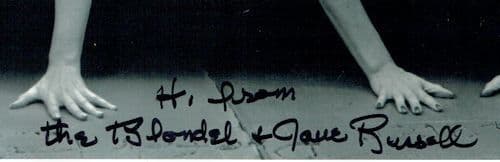 Hi, from
the Blondel & Jane Russell